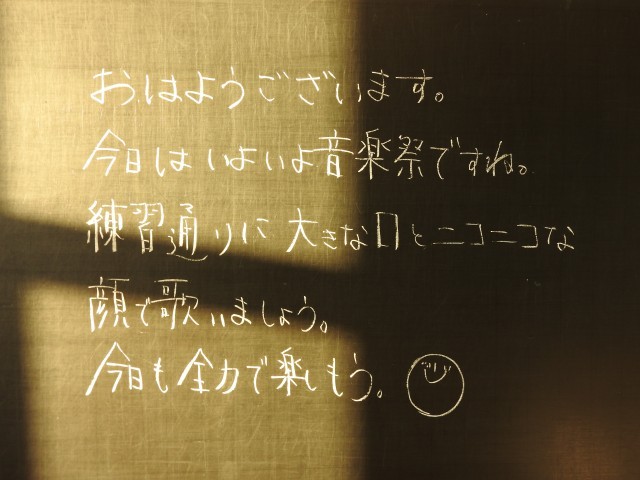 おはようございます。
今日はいよいよ音楽祭ですね。
練習通りに大きな口とニコニコな
顔で歌いましょう。
今日も全力で楽しもう。